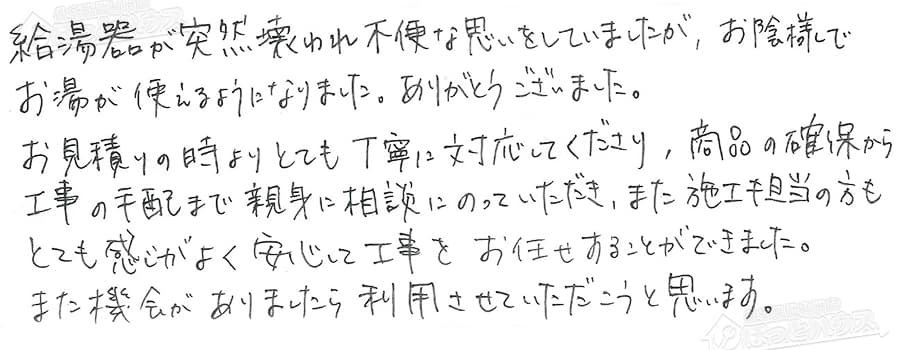 給湯器が突然壊われ不便な思いをしていましたが、お陰様で
お湯が使えるようになりました。ありがとうございました。
お見積りの時よりとても丁寧に対応してくださり、商品の確保から
工事の手配まで親身に相談にのっていただき、また施工担当の方も
とても感じがよく安心して工事をお任せすることができました。
また機会がありましたら利用させていただこうと思います。